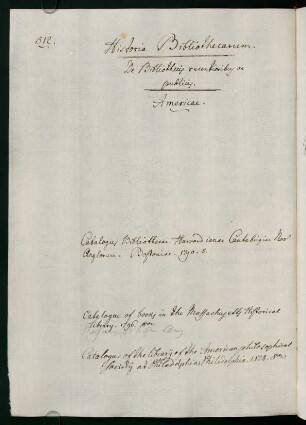 512.
Historia Bibliothecarum.
De Bibliothecis recentioribus
publicis.
Americae.
Catalogus Bibliothecae Harvardianae Cantabrigiae Nov
Anglorum. Bostoniae. 1790. 8.
Catalogue of books in the Massachusetts Historical
library. 1796.
Catalogue of the library of the American philosophical
Society at Philadelphia. Philadelphia 1824. 8vo